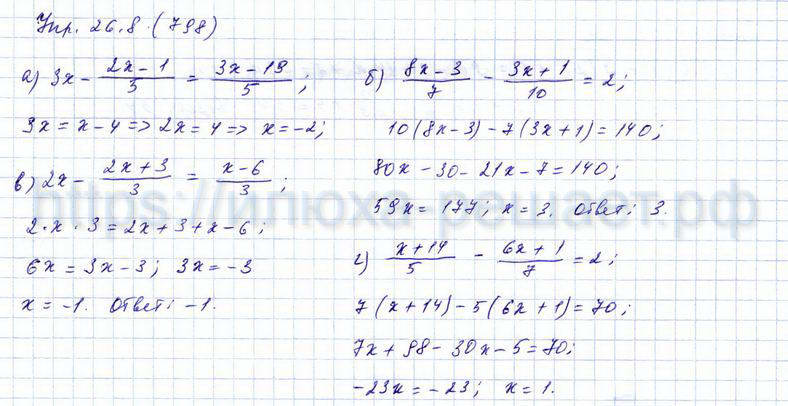 Упр. 26.8 (798)
а) 3x - (2x - 1)/5 = (3x - 19)/5;
3x = x - 4 => 2x = 4 => x = -2;
в) 2x - (2x + 3)/3 = (x - 6)/3;
2 · x · 3 = 2x + 3 + x - 6;
6x = 3x - 3; 3x = -3
x = -1. Ответ: -1.
б) (8x - 3)/7 - (3x + 1)/10 = 2;
10(8x - 3) - 7(3x + 1) = 140;
80x - 30 - 21x - 7 = 140;
59x = 177; x = 3. Ответ: 3.
г) (x + 14)/5 - (6x + 1)/7 = 2;
7(x + 14) - 5(6x + 1) = 70;
7x + 98 - 30x - 5 = 70;
-23x = -23; x = 1.
https://илюха-решает.рф